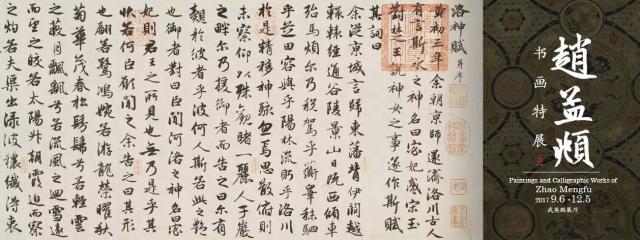 洛神賦 并序
黃初三年余朝京師還濟洛川古人
有言斯水之神名曰宓妃感宋玉
對楚王說神女之事遂作斯賦
其詞曰
余從京域言歸東藩背伊闕越
轘轅經通谷陵景山日既西傾車
殆馬煩爾乃稅駕乎蘅皋秣駟
乎芝田容與乎陽林流眄乎洛川
於是精移神駭忽焉思散俯則
未察仰以殊觀睹一麗人于巖
之畔尔乃援御者而告之曰尔有
覿於彼者乎彼何人斯若此之豔
也御者對曰臣聞河洛之神名曰宓
妃則君王之所見也無乃是乎其
狀若何臣願聞之余告之曰其形
也翩若驚鴻婉若游龍榮曜秋
菊華茂春松髣髴兮若輕雲
之蔽月飄飄兮若流風之迴雪遠
而望之皎若太陽升朝霞迫而察
之灼若夫渠出淥波穠纖得衷
趙孟頫
书画特展
Paintings and Calligraphic Works of
Zhao Mengfu
2017.9.6 -12.5
武英殿展厅